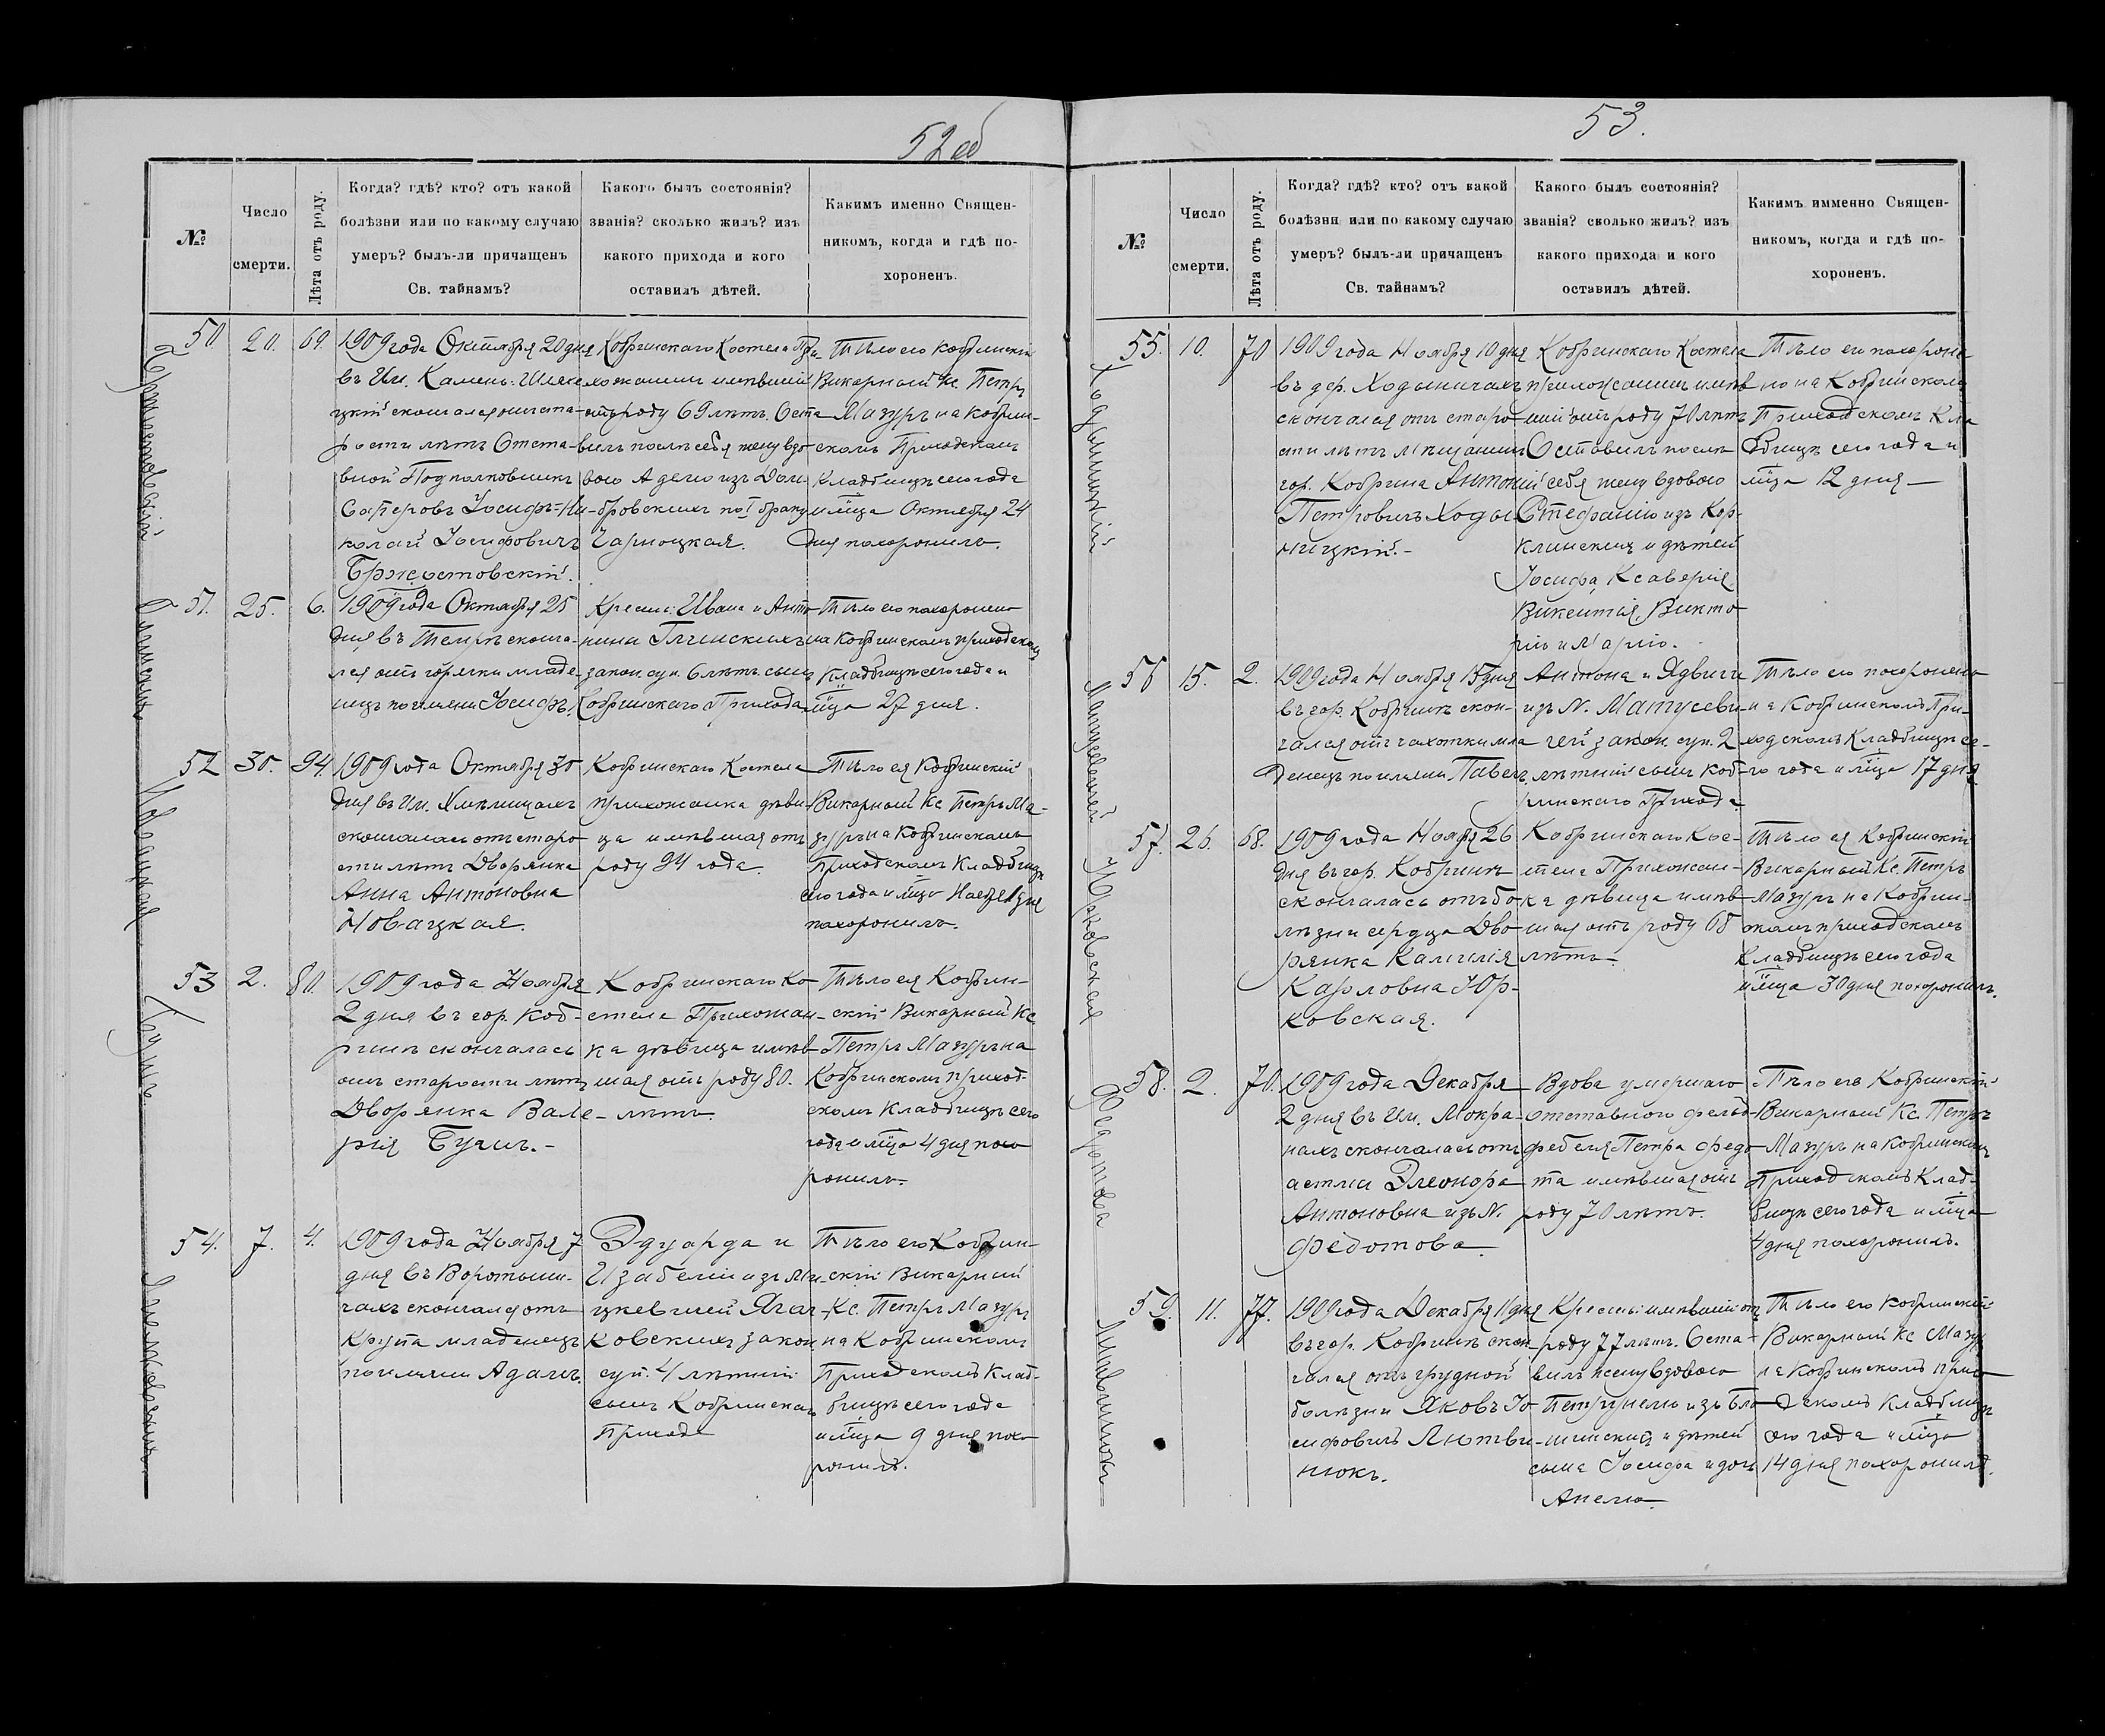 52об
№
Число
смерти.
Лѣта отъ роду.
Когда? гдѣ? кто? отъ какой
болѣзни или по какому случаю
умеръ? былъ-ли причащенъ
Св. тайнамъ?
Какого былъ состоянія?
званія? сколько жилъ? изъ
какого прихода и кого
оставилъ дѣтей.
Какимъ именно Священ-
никомъ, когда и гдѣ по-
хороненъ.
Бржостовскій
50. 20. 69.
1909 года Октября 20 дня
въ Им. Камень-Шляхе
цкій скончался от ста-
рости лѣтъ Отста-
вной Подполковникъ
Саперовъ Іосифъ-Ни-
колай Іосифовичъ
Бржостовскій.
Кобринскаго Костела При
хожанинъ имѣвшій
отъ роду 69 лѣтъ. Оста
вилъ послѣ себя жену вдо
вою Аделю изъ Дом-
бровскихъ по I браку
Чарноцкая.
Тѣло его Кобринскій
Викарный Кс. Петръ
Мазуръ на Кобрин-
скомъ Приходскомъ
Кладбищѣ сего года
и мца Октября 24
дня похоронилъ.
Глинскихъ
51. 25. 6.
1909 года Октября 25
дня, въ сконча-
лся отъ горячки младе-
нецъ по имени Іосифъ.
Крестья: Ивана и Анто
нины Глинскихъ
закон. суп. 6 лѣтъ. сынъ
Кобринскаго Прихода
Тѣло его похоронено
на Кобринскомъ приходскомъ
Кладбищѣ сего года и
мца 27 дня.
Новацкая
52 30. 94.
1909 года Октября 30
дня въ Им. Хмѣлищахъ
скончалась отъ старо
сти лѣтъ Дворянка
Анна Антоновна
Новацкая.
Кобринскаго Костела
прихожанка дѣви
ца имѣвшая отъ
роду 94 года.
Тѣло ея Кобринскій
Викарный Кс Петръ Ма-
зуръ на Кобринскомъ
Приходскомъ Кладбищѣ
сего года и мца 1 дня
похоронилъ.
Бугинъ
53 2. 80
1909 года Ноября
2 дня въ гор. Коб-
ринѣ скончалась
отъ старости лѣтъ
Дворянка Вале-
рія Бугинъ.-
Кобринскаго Ко
стела Прихожан-
ка дѣвица имѣв
шая отъ роду 80.
лѣтъ.
Тѣло ея Кобрин-
скій Викарный Кс
Петръ Мазуръ на
Кобринскомъ приход-
скомъ Кладбищѣ сего
года и мца 4 дня похо
ронилъ.
54. 7. 4.
1909 года Ноября 7
дня въ
скончался отъ
Крупа младенецъ
по имени Адамъ.
Эдуарда и
Изабеліи изъ Ми
цкевичей
закон
суп. 4 лѣтній
сынъ Кобринскаго
Прихода
Тѣло его Кобрин-
скій Викарный
Кс. Петръ Мазуръ
на Кобринскомъ
Приходскомъ Клад-
бищѣ сего года
и мца 9 дня похо
ронилъ.
53.
№
Число
смерти.
Лѣта отъ роду.
Когда? гдѣ? кто? отъ какой
болѣзни или по какому случаю
умеръ? былъ-ли причащенъ
Св. тайнамъ?
Какого былъ состоянія?
званія? сколько жилъ? изъ
какого прихода и кого
оставилъ дѣтей.
Какимъ имменно Священ-
никомъ, когда и гдѣ по-
хороненъ.
Ходыницкій
55. 10. 70
1909 года Ноября 10 дня
въ дер. Ходыничахъ
скончался отъ старо
сти лѣтъ мѣщанинъ
гор. Кобрина Антоній
Петровичъ Ходы-
ницкій.-
Кобринскаго Костела
прихожанинъ имѣв
шій отъ роду 70 лѣтъ
Оставилъ послѣ
себя жену вдовою
Стефанію изъ Кор-
клинскихъ и дѣтей
Іосифа, Ксаверія,
Викентія, Викто
рію и Марію.
Тѣло его похороне
но на Кобринскомъ
Приходскомъ Кла
дбищѣ сего года и
мца 12 дня —
Матусевичей
56 15. 2.
1909 года Ноября 15 дня
въ гор. Кобринѣ скон-
чался отъ чахотки мла
денецъ по имени Павелъ
Антона и Ядвиги
изъ N. Матусеви-
чей закон. суп. 2
лѣтній сынъ Коб-
ринскаго Прихода
Тѣло его похоронено
на Кобринскомъ При-
ходскомъ Кладбищѣ се-
го года и мца 17 дня
Юрковская
57. 26. 68.
1909 года Ноября 26
дня въ гор. Кобринѣ
скончалась отъ бо
лѣзни сердца Дво
рянка Камилія
Карловна Юр-
ковская.
Кобринскаго Кос-
тела Прихожан-
ка дѣвица имѣв
шая отъ роду 68
лѣтъ.
Тѣло ея Кобринскій
Викарный Кс. Петръ
Мазуръ на Кобрин-
скомъ приходскомъ
Кладбищѣ сего года
и мца 30 дня похоронилъ.
Федотова
58. 2. 70.
1909 года Декабря
2 дня въ Им. Мокра-
нахъ скончалась отъ
астмы Элеонора
Антоновна изъ N.
Федотова.
Вдова умершаго
отставного фельд-
фебеля Петра Федо
та имѣвшая отъ
роду 70 лѣтъ.
Тѣло его Кобринскій
Викарный Кс. Петръ
Мазуръ на Кобринскомъ
Приходскомъ Клад-
бищѣ сего года и мца
4 дня похоронилъ.
Литвинюкъ
59. 11. 77.
1909 года Декабря 11 дня
въ гор. Кобринѣ скон
чался отъ грудной
болѣзни Яковъ Іо
сифовичъ Литви-
нюкъ.
Крестьян: имѣвшій отъ
роду 77 лѣтъ. Оста-
вилъ жену вдовою
Петрунелю изъ
и дѣтей
сына Іосифа и дочь
Анелю.
Тѣло его Кобринскій
Викарный Кс Мазуръ
на Кобринскомъ прихо
дскомъ Кладбищѣ
сего года и мца
14 дня похоронилъ.